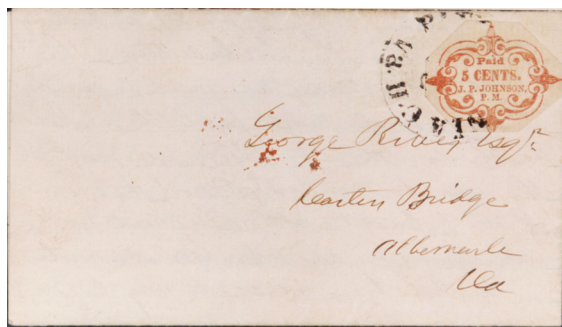 Paid
5 CENTS.
J. P. JOHNSON,
P. M.
George Rives Esqr.
Carters Bridge
Albemarle
Va